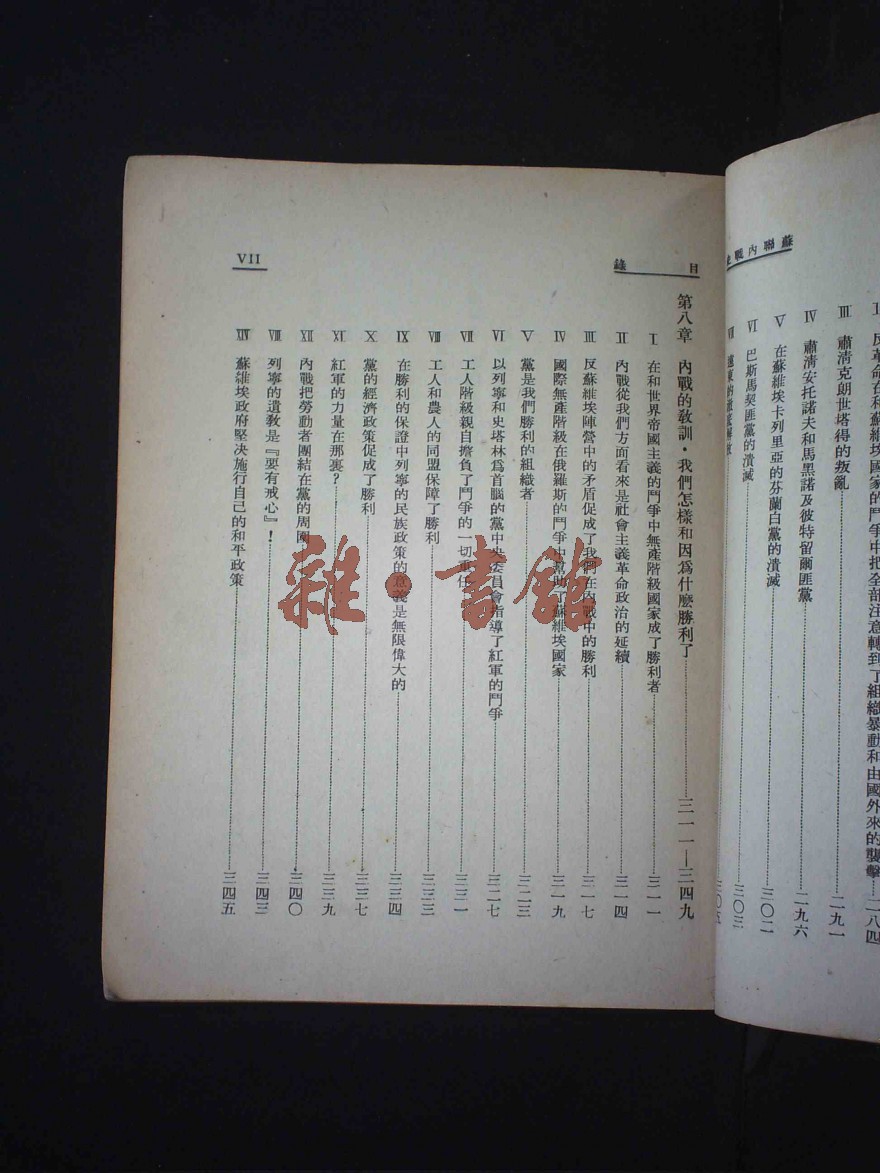 蘇聯內戰
反革命在和蘇維埃國家的鬥爭中把全部注意轉到了組織暴動和由國外來的襲擊……二八四
III 肅清克朗世塔得的叛亂……二九一
IV 肅清安托諾夫和馬黑諾及彼特留爾匪黨……二九六
V 在蘇維埃卡列里亞的芬蘭白黨的潰滅……三〇二
VI 巴斯馬契匪黨的潰滅……三〇三
VII 遠東的徹底解放……三〇五
目錄
VII
第八章 內戰的教訓·我們怎樣和因爲什麼勝利了……三一一—三四九
I 在和世界帝國主義的鬥爭中無產階級國家成了勝利者……三一一
II 內戰從我們方面看來是社會主義革命政治的延續……三一四
III 反蘇維埃陣營中的矛盾促成了我們在內戰中的勝利……三一七
IV 國際無產階級在俄羅斯的鬥爭中幫助了蘇維埃國家……三一九
V 黨是我們勝利的組織者……三二三
VI 以列寧和史塔林爲首腦的黨中央委員會指導了紅軍的鬥爭……三二七
VII 工人階級親自擔負了鬥爭的一切重任……三三一
VIII 工人和農人的同盟保障了勝利……三三三
IX 在勝利的保證中列寧的民族政策的意義是無限偉大的……三三四
X 黨的經濟政策促成了勝利……三三七
XI 紅軍的力量在那裏？……三三九
XII 內戰把勞動者團結在黨的周圍……三四〇
XIII 列寧的遺教是『要有戒心』！……三四三
XIV 蘇維埃政府堅决施行自己的和平政策……三四五
雜·書館